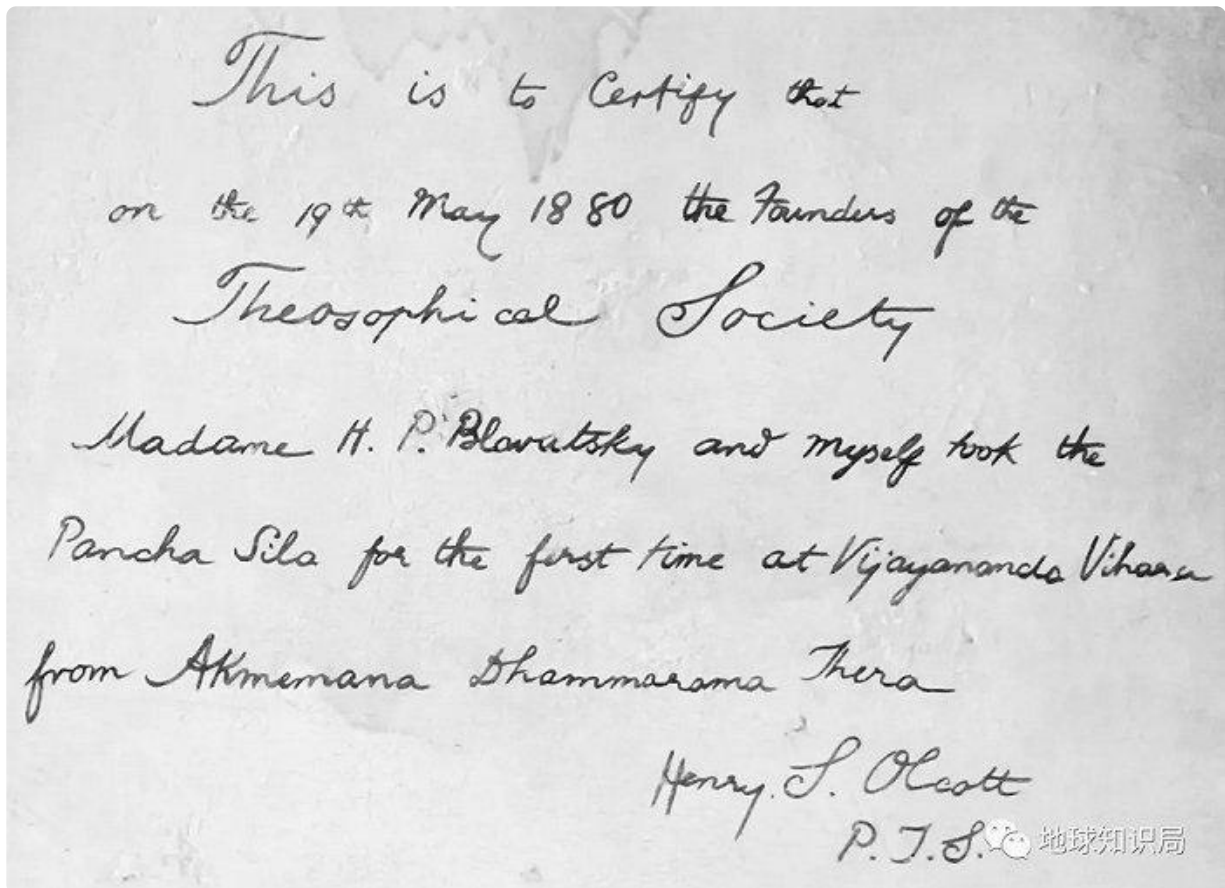 This is to Certify that
on the 19th May 1880 the Founders of the
Theosophical Society
Madame H. P. Blavutsky and myself took the
Pancha Sila for the first time at Vijayananda Vihara
from Akmemana Dhammarama Thera
Henry. S. Olcott
P. T. S.
地球知识局